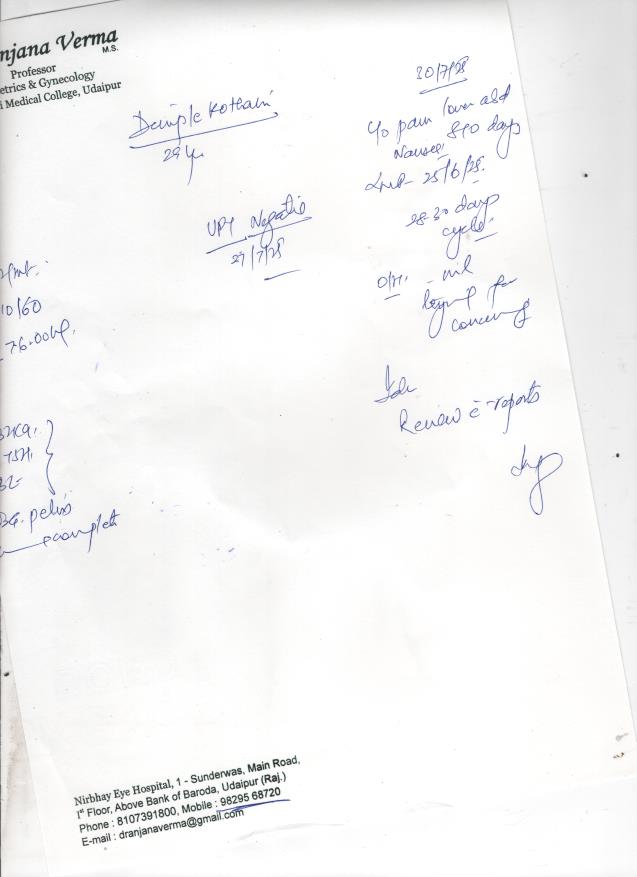 njana Verma
M.S.
Professor
etrics & Gynecology
i Medical College, Udaipur
30/7/25
Dimple Kothari
29 yr
c/o pain lower abd
Nausea 8-10 days
LMP - 25/6/25.
28-30 days
cycle
UPT Negative
27/7/25
O/H. - nil
for
conceiving
10/60
76.00
TSH.
pelvis
complete
Adv
Review c̄ reports
Nirbhay Eye Hospital, 1 - Sunderwas, Main Road,
Iˢᵗ Floor, Above Bank of Baroda, Udaipur (Raj.)
Phone : 8107391800, Mobile : 98295 68720
E-mail : dranjanaverma@gmail.com